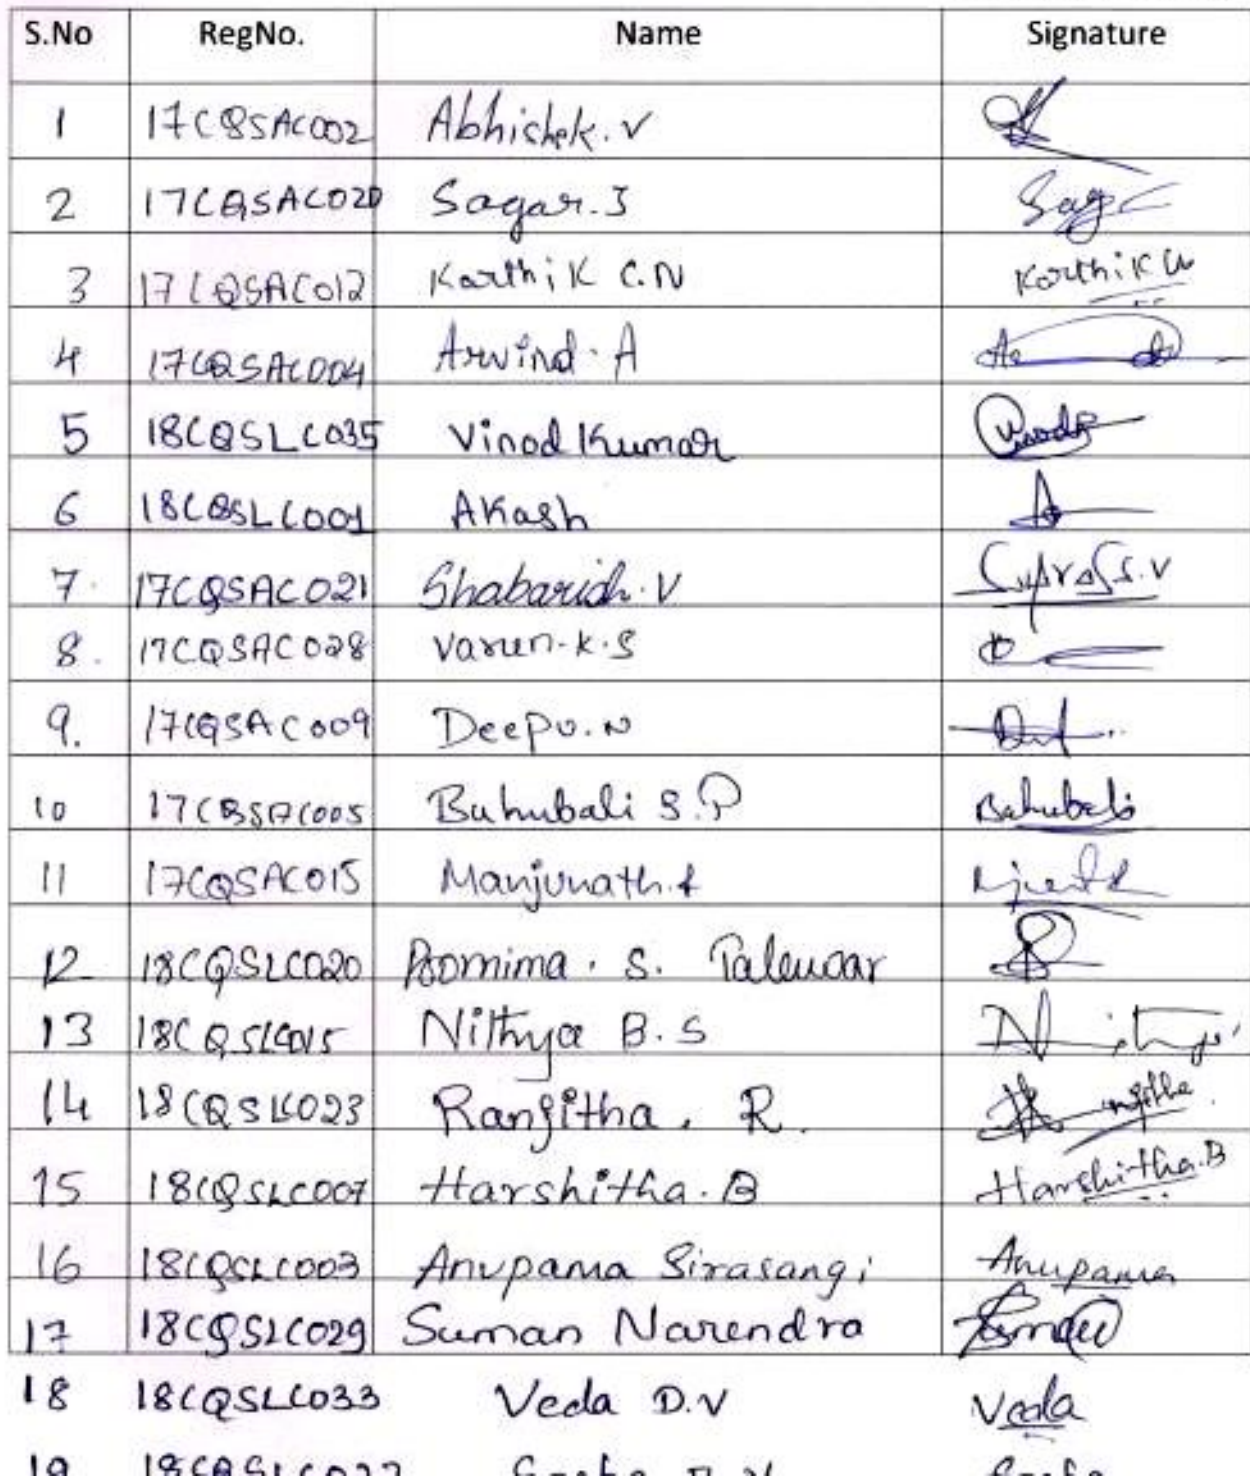 S.No RegNo. Name Signature
1 17CQSAC002 Abhishek. V
2 17CQSAC020 Sagar. J Sag
3 17CQSAC012 Karthik C.N Karthik CN
4 17CQSAC004 Arvind. A
5 18CQSLC035 Vinod Kumar
6 18CQSLC001 Akash
7. 17CQSAC021 Shabarish. V
8. 17CQSAC028 Varun. K. S
9. 17CQSAC009 Deepu. N
10 17CQSAC005 Buhubali S.P Bahubali
11 17CQSAC015 Manjunath.
12 18CQSLC020 Poornima. S. Talewar
13 18CQSLC015 Nithya B. S
14 18CQSLC023 Ranjitha. R.
15 18CQSLC007 Harshitha. B Harshitha. B
16 18CQSLC003 Anupama Sirasangi Anupama
17 18CQSLC029 Suman Narendra
18 18CQSLC033 Veda D.V Veda
19